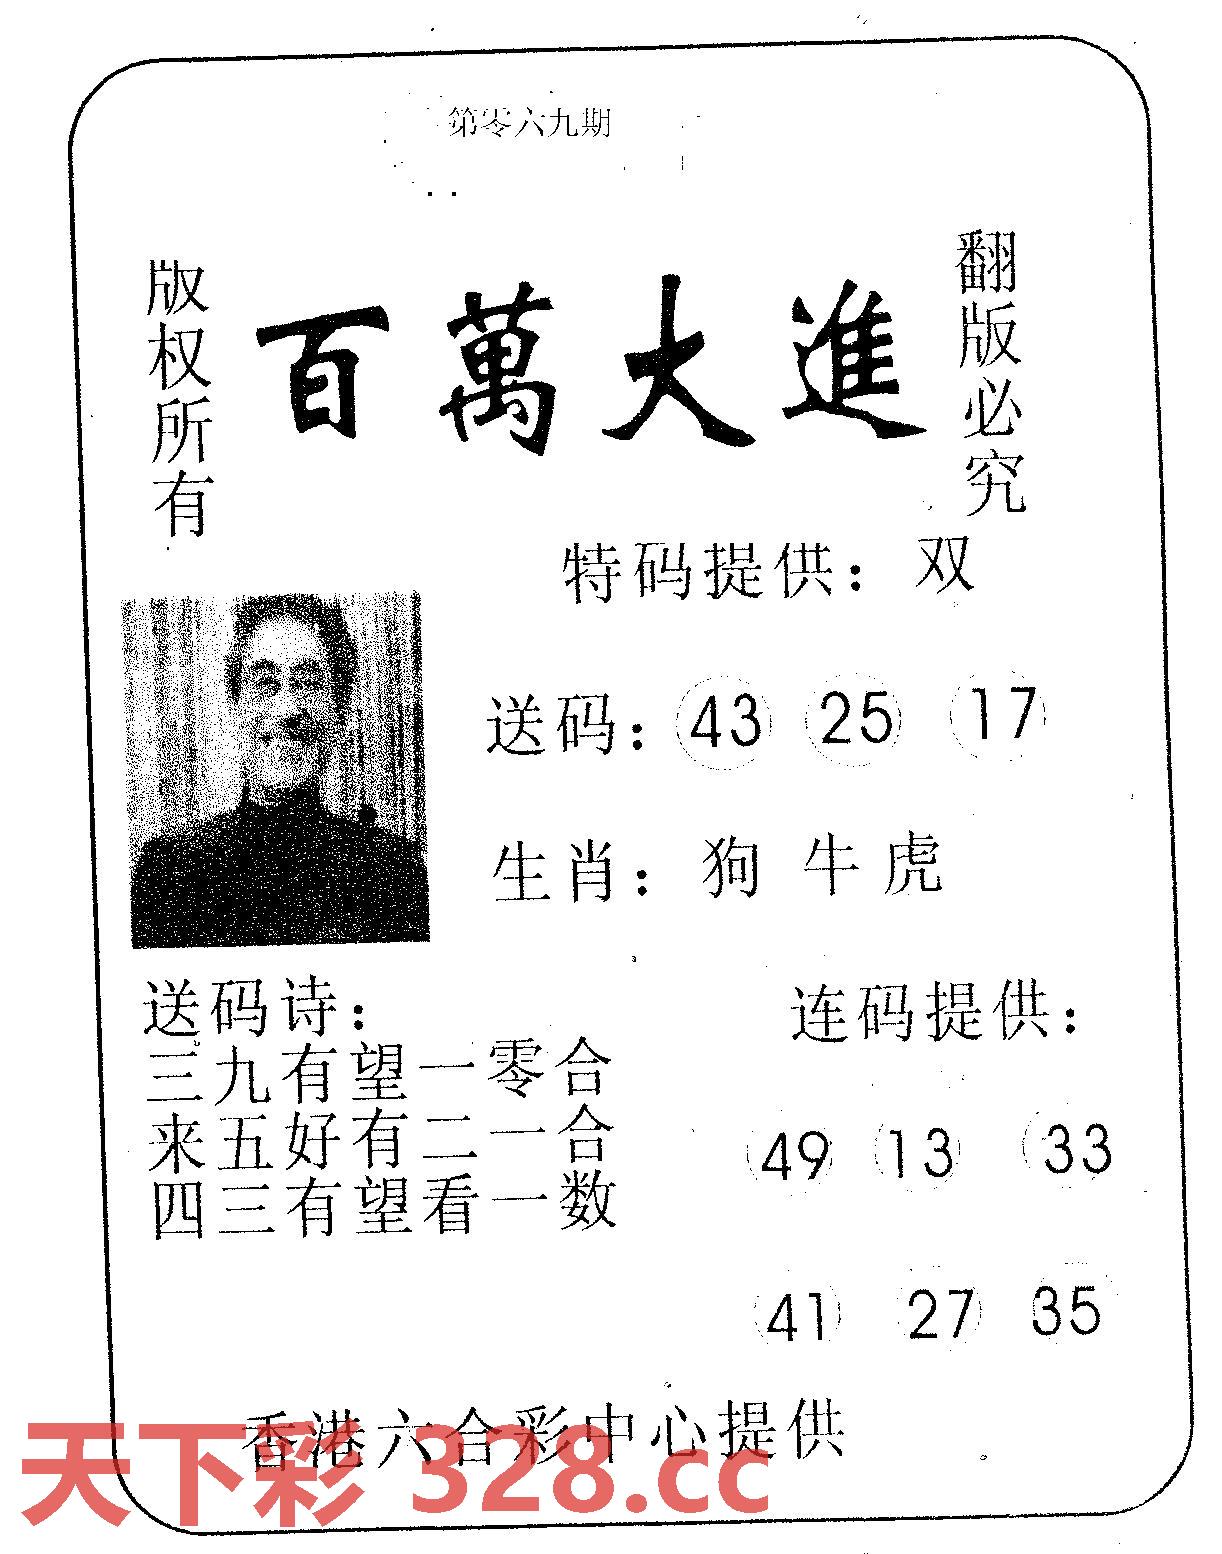 第零六九期
版权所有
百萬大進
翻版必究
特码提供：双
送码：43 25 17
生肖：狗 牛 虎
送码诗：
三九有望一零合
来五好有二一合
四三有望看一数
连码提供：
49 13 33
41 27 35
香港六合彩中心提供
天下彩 328.cc